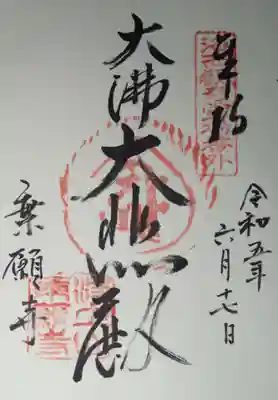 奉拝
令和五年
六月十七日
大佛大悲殿
乗願寺